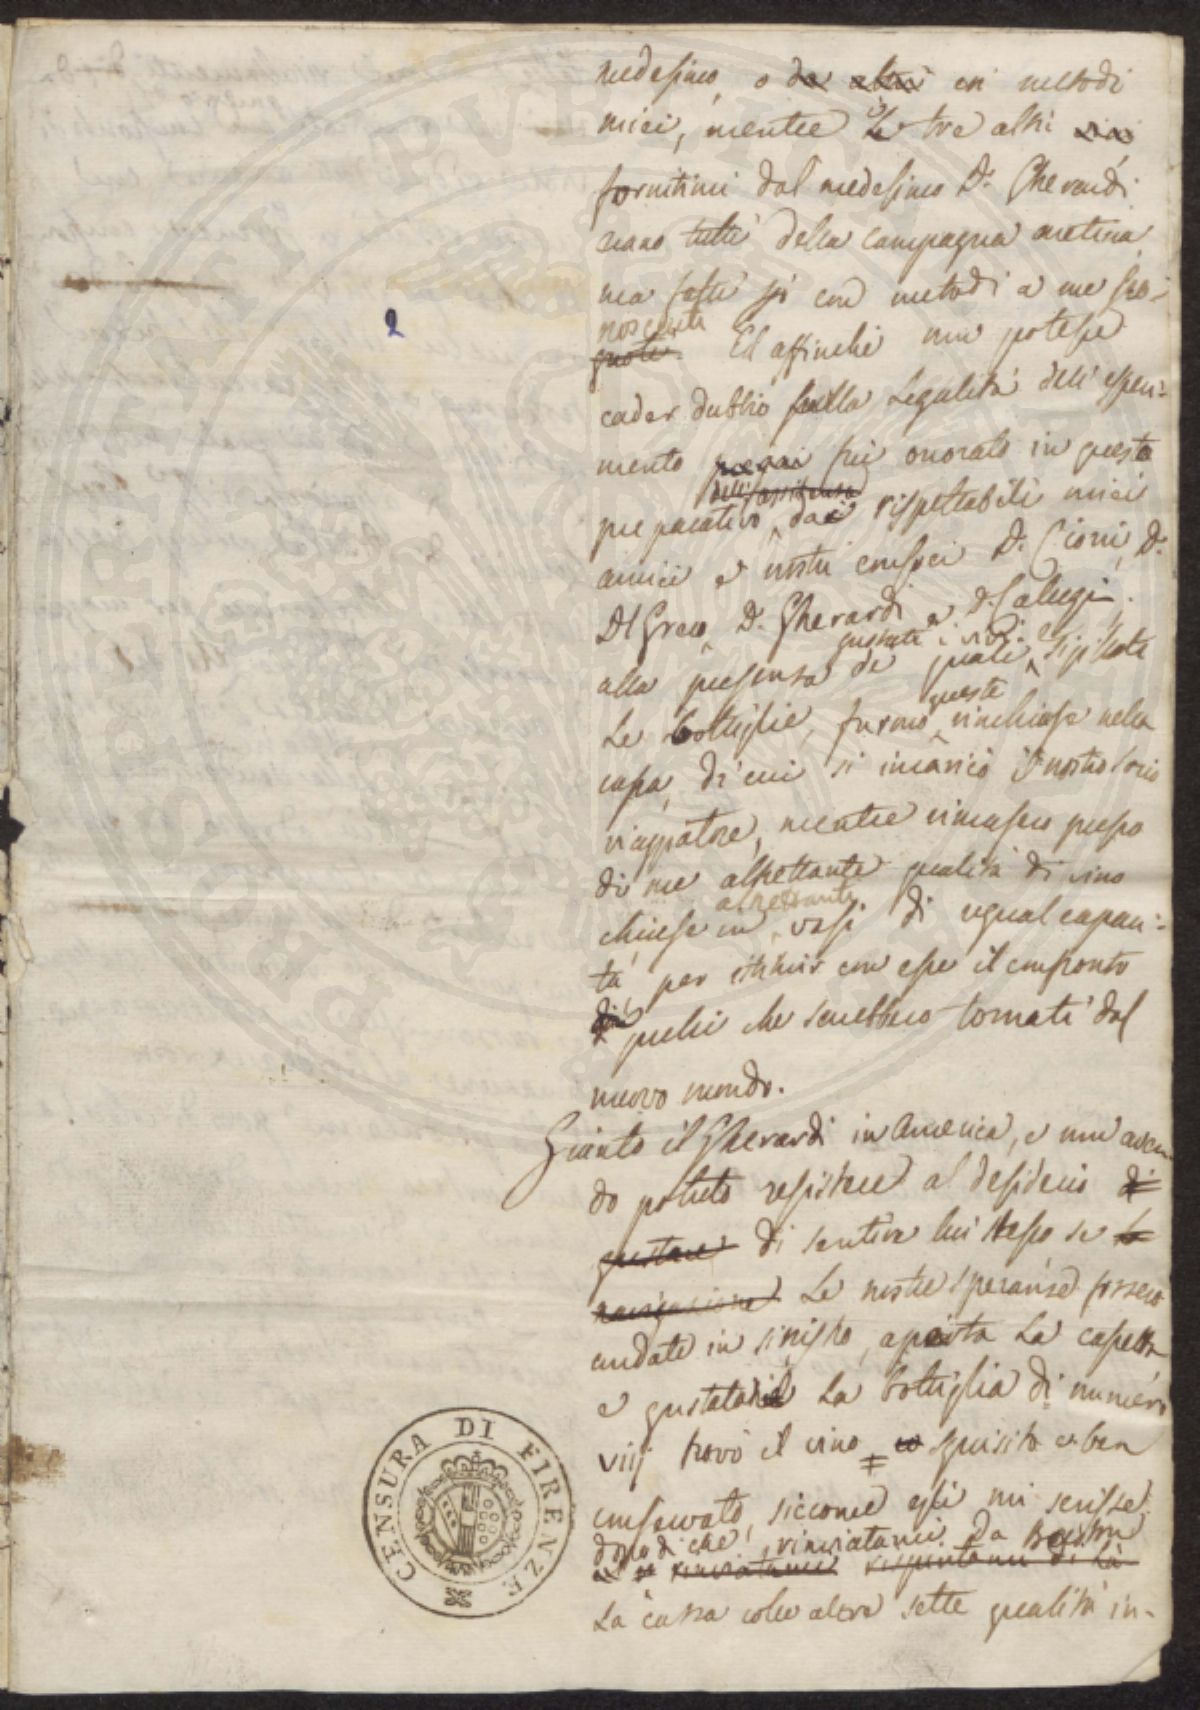 medesimo, o da altri coi metodi
miei, mentre i tre altri vini
fornitimi dal medesimo D.r Gherardi
erano tutti della campagna aretina
ma fatti con metodi a me sco-
nosciuti
gnoti. Ed affinché non potesse
cader dubbio sulla legalità dell' esperi-
mento fui onorato in questo
dell'assistenza
preparativo, dai rispettabili miei
amici e nostri consoci D. Cioni, D.
Del Greco, D. Gherardi e D. Calugi.
gustati i vini e
alla presenza de' quali, sigillate
queste
le bottiglie, furono rinchiuse nella
cassa, di cui si incaricò il nostro socio
viaggiatore, mentre rimasero presso
di me altrettante qualità di vino
altrettanti
chiuse in vasi di ugual capaci-
tà per istituir con esse il confronto
di quelli che sarebbero tornati dal
nuovo mondo.
Giunto il Gherardi in America, e non aven-
do potuto resistere al desiderio di
gustare di sentire lui stesso se la
navigazione le nostre speranze fossero
andate in sinistro, aperta la cassetta
e gustata la bottiglia di numero
viij trovò il vino squisito e ben
conservato, siccome egli mi scrisse.
dopo di che, rinviatami da Boston
rinviatami di là
la cassa colle altre sette qualità in-
2
CENSURA DI FIRENZE
PROPRIETÀ PUBLICA